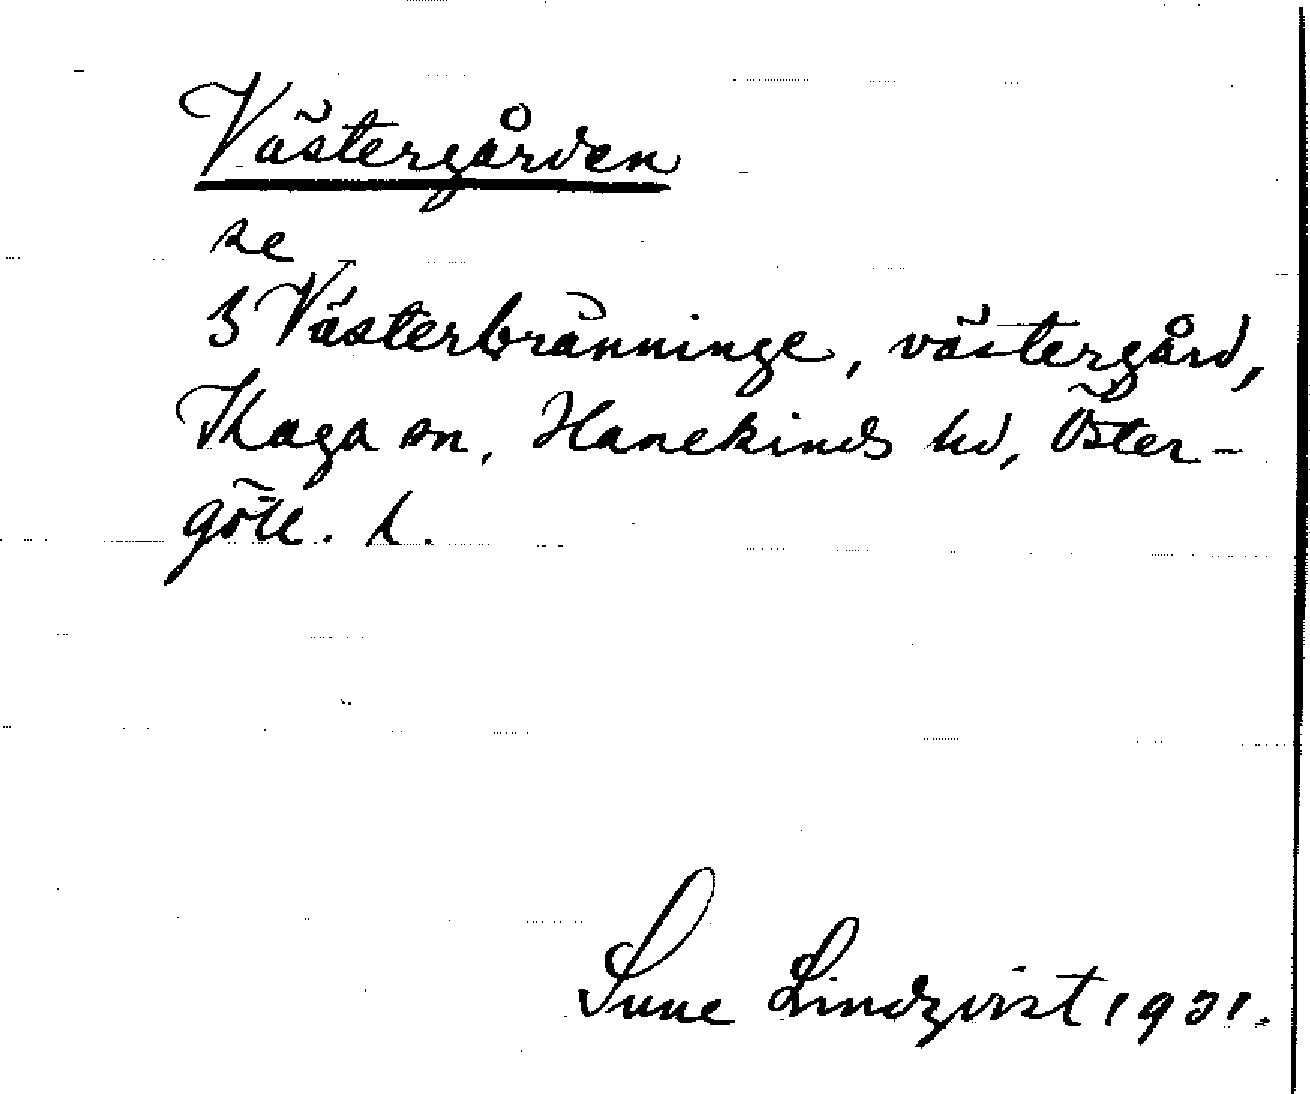 Västergården
se
3 Västerbränninge, västergård,
Kaga sn, Hanekinds hd, Öster-
götl. l.
Sune Lindqvist 1931.